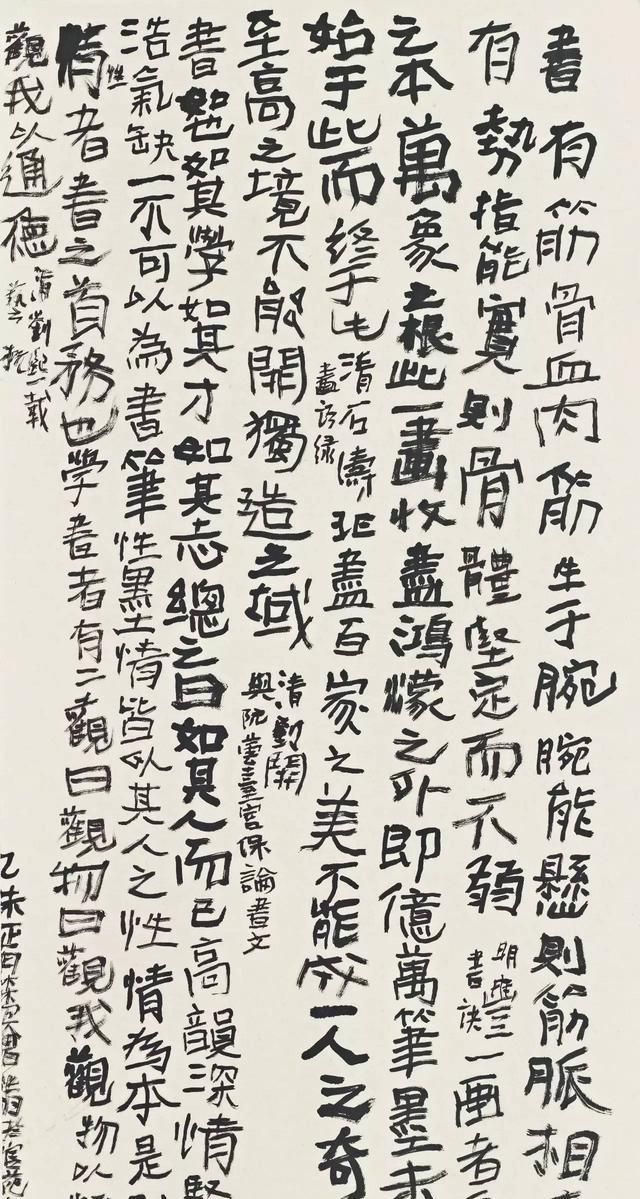 書有筋骨血肉筋生于腕腕能懸則筋脈相
有勢指能實則骨體堅定而不弱 明豐 書訣 一画者
之本萬象之根此一畫收盡鴻濛之外即億萬筆墨未
始于此而終于此 清石濤 畫語錄 非盡百家之美不能成一人之奇
至高之境不能開獨造之域 清劉開 與阮芸臺宮保論書文
書如也如其學如其才如其志總之曰如其人而已高韻深情堅
浩氣缺一不可以為書筆性墨情皆以其人之性情為本是
情性者書之首務也学書者有二觀曰觀物曰觀我觀物以
觀我以通德 清劉熙載 藝概
乙未正月